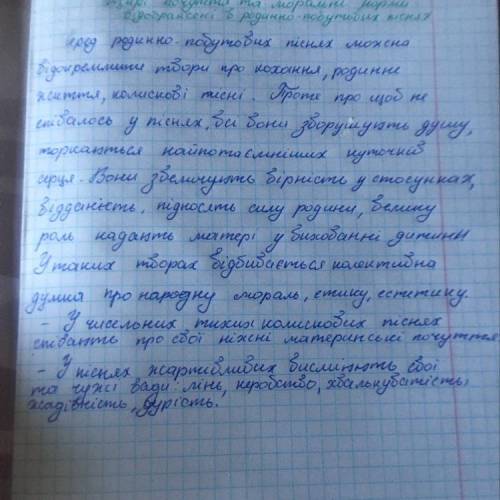 почуття та моральні норми
відображені в родинно-побутових піснях
Серед родинно-побутових піснях можна
відокремлити твори про кохання, родинне
життя, колискові пісні. Проте про щоб не
співалось у піснях, всі вони зворушують душу,
торкаються найпотаємніших куточків
серця. Вони звеличують вірність у стосунках,
відданість, підносять силу родини, велику
роль надають матері у вихованні дитини
У таких творах відбивається колективна
думка про народну мораль, етику, естетику.
- У чисельних тихих колискових піснях
співають про свої ніжні материнські почуття.
- У піснях жартивливих висміюють свої
та чужі вади: лінь, неробство, хвалькуватість,
жадівність, дурість.